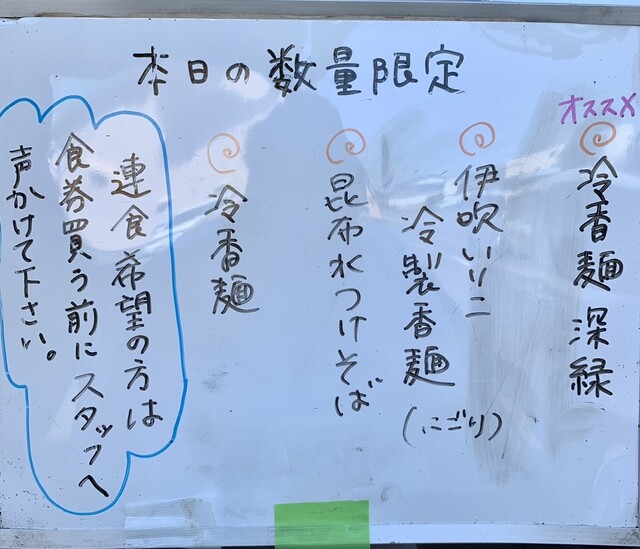 本日の数量限定
オススメ
冷香麺 深緑
伊吹いりこ
冷製香麺
(にごり)
昆布水つけそば
冷香麺
連食希望の方は
食券買う前にスタッフへ
声かけて下さい。